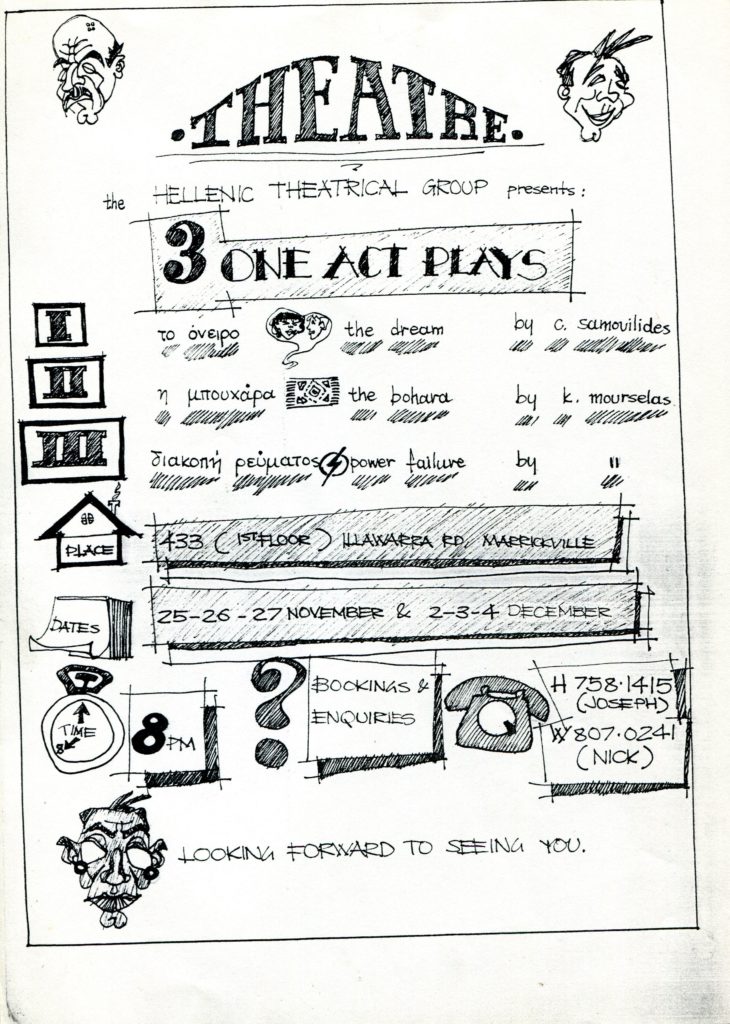 THEATRE.
the HELLENIC THEATRICAL GROUP presents:
3 ONE ACT PLAYS
I το όνειρο the dream by c. samouilides
II η μπουχάρα the bohara by k. mourselas
III διακοπή ρεύματος power failure by "
PLACE 433 (1ST FLOOR) ILLAWARRA RD, MARRICKVILLE
DATES 25-26-27 NOVEMBER & 2-3-4 DECEMBER
TIME 8 8 PM
? BOOKINGS &
ENQUIRIES
H 758·1415
(JOSEPH)
W 807·0241
(NICK)
LOOKING FORWARD TO SEEING YOU.